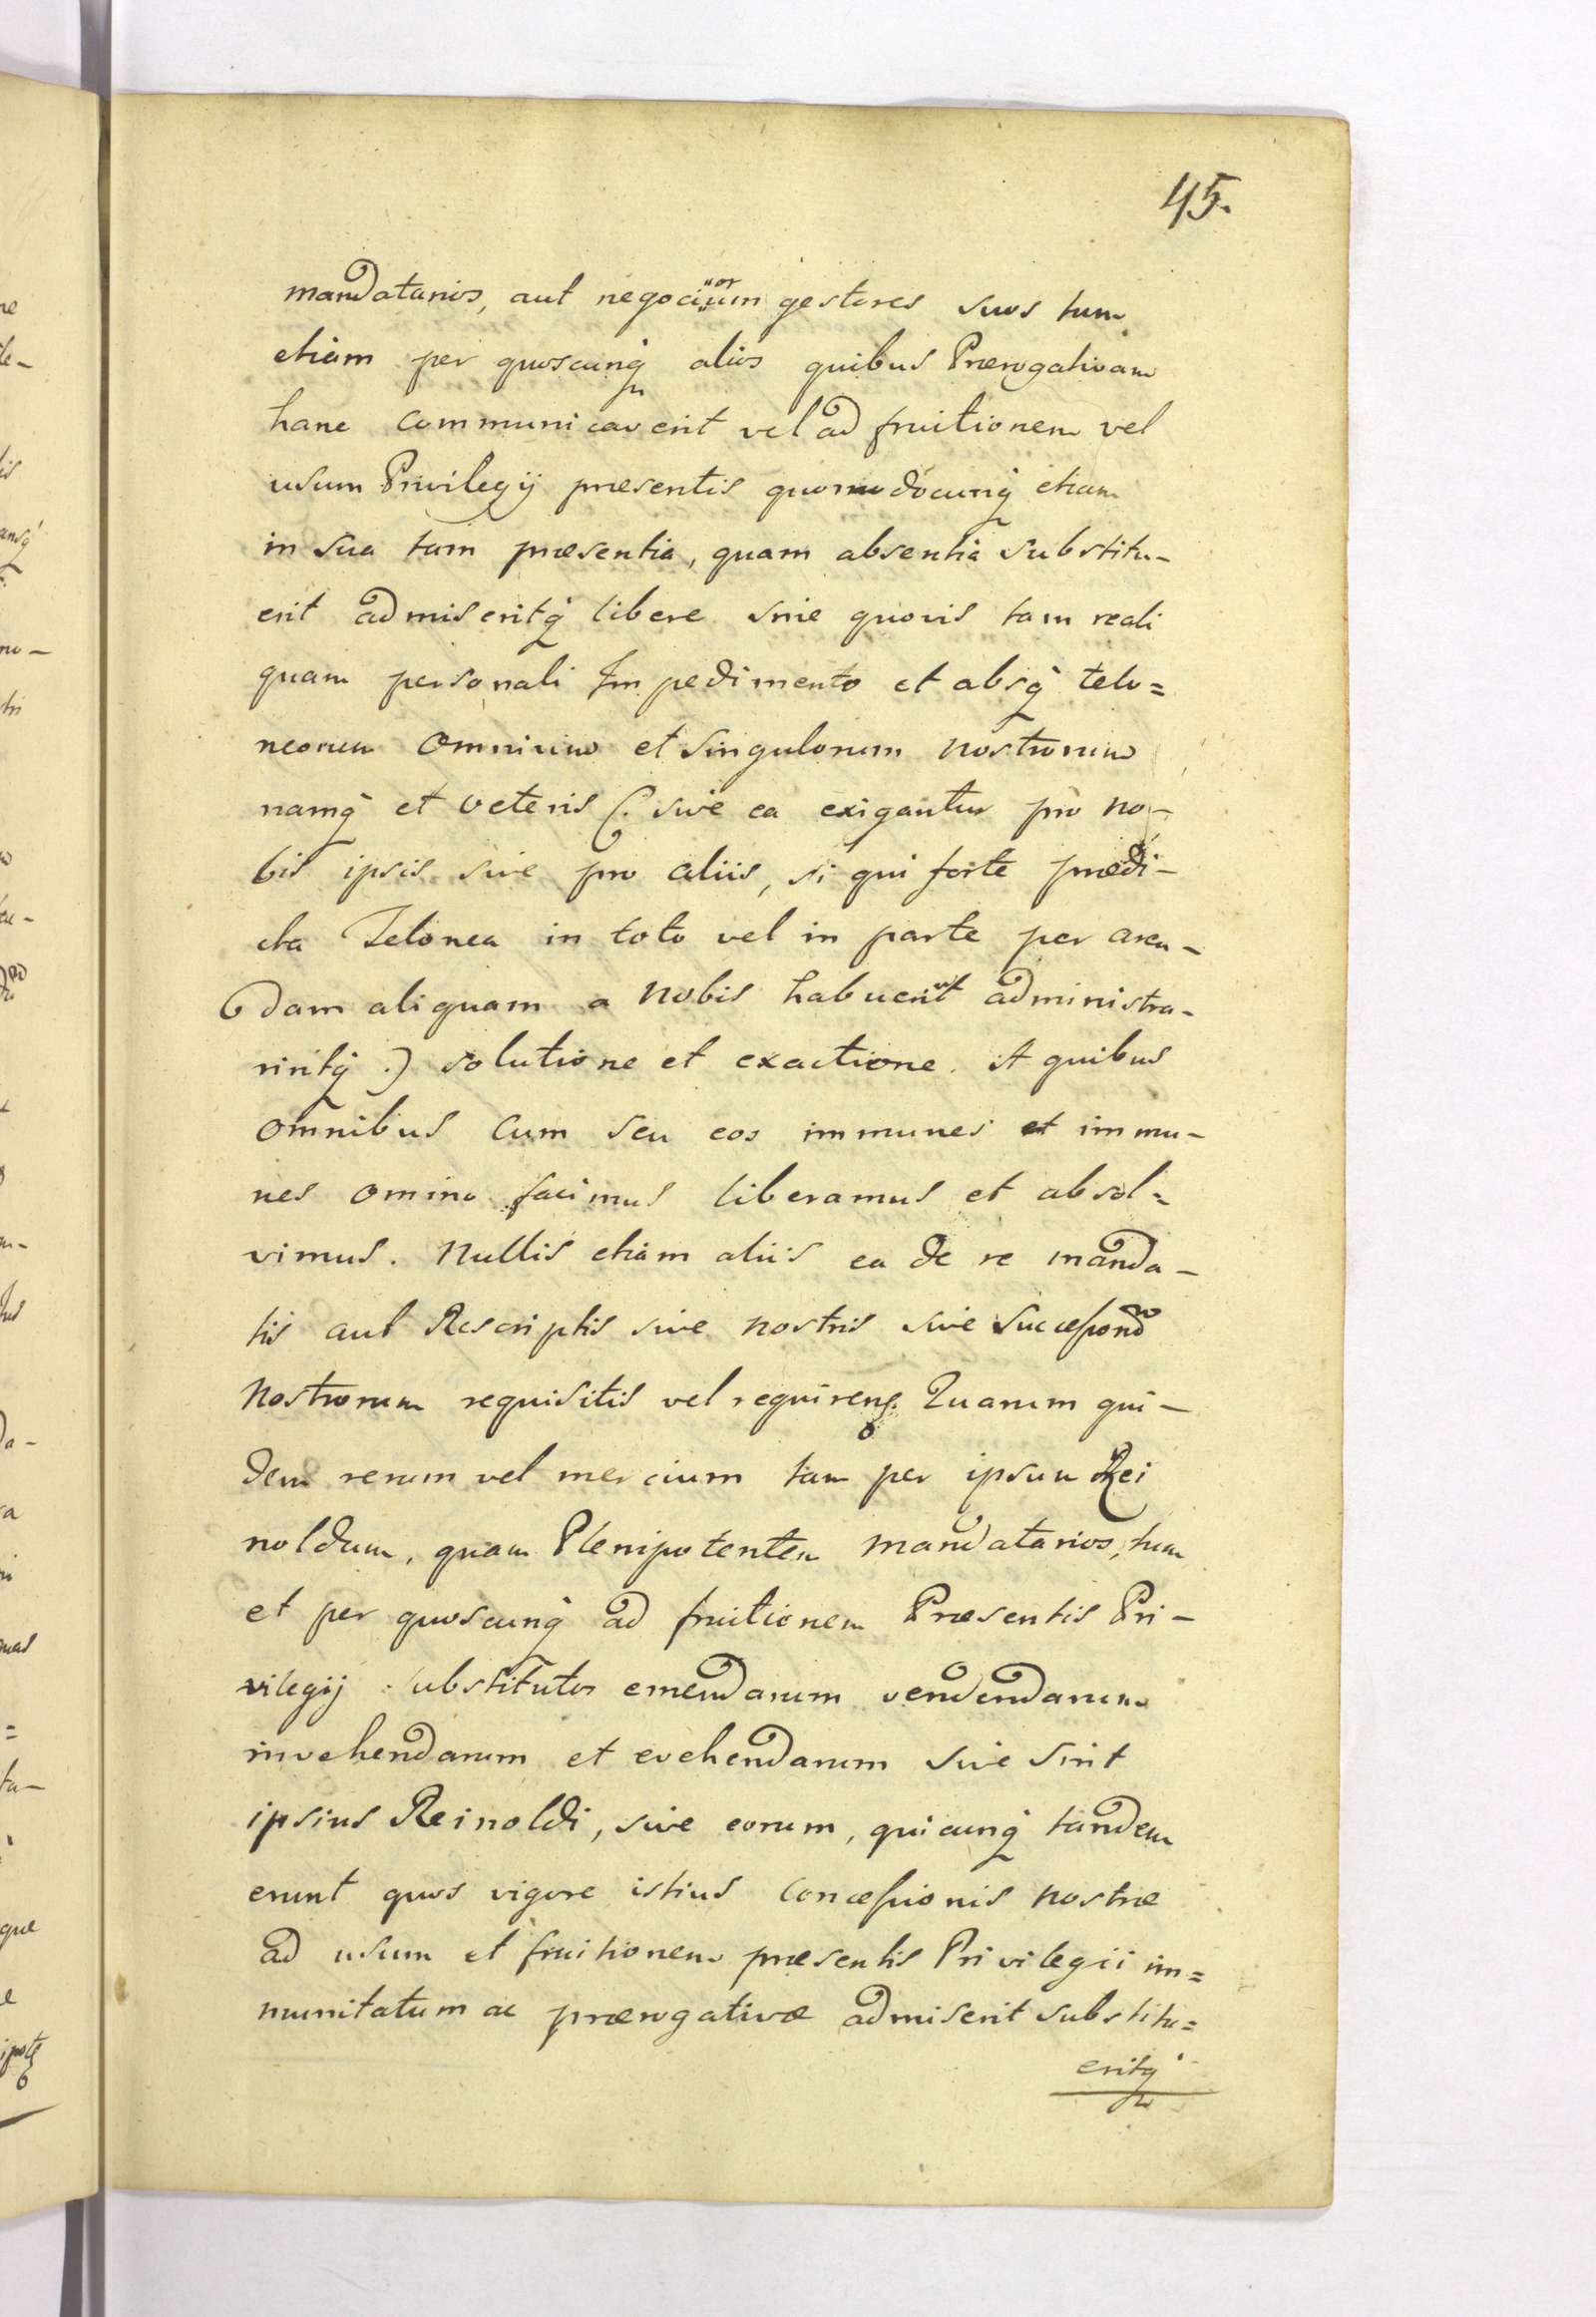 45.
mandatarios, aut negociorum gestores suos tum
etiam per quoscunq alios quibus Prærogativam
hanc communicaverit vel ad fruitionem vel
usum Privilegij præsentis quomodocunq etiam
in sua tam præsentia, quam absentia substitu-
erit admiseritq libere sine quovis tam reali
quam personali Impedimento et absq telo=
neorum omnium et singulorum nostrorum
namq et veteris (. sive ea exigantur pro no-
bis ipsis sive pro aliis, si qui forte prædi-
cta Telonea in toto vel in parte per aren-
dam aliquam a nobis habuerint administra-
rintq .) solutione et exactione. A quibus
omnibus cum seu eos immunes et immu-
nes omino facimus liberamus et absol=
vimus. Nullis etiam aliis ea de re manda-
tis aut Rescriptis sive nostris sive Successorũ
Nostrorum requisitis vel requirens. Quarum qui-
dem rerum vel mercium tam per ipsum Rei
noldum, quam Plenipotentem mandatarios, tum
et per quoscunq ad fruitionem Præsentis Pri-
vilegij substitutos emendarum vendendarum
invehendarum et evehendarum sive sint
ipsius Reinoldi, sive eorum, quicunq tandem
erunt quos vigore istius Concessionis nostræ
ad usum et fruitionem præsentis Privilegii im=
munitatum ac prærogativæ admiserit substitu=
eritq